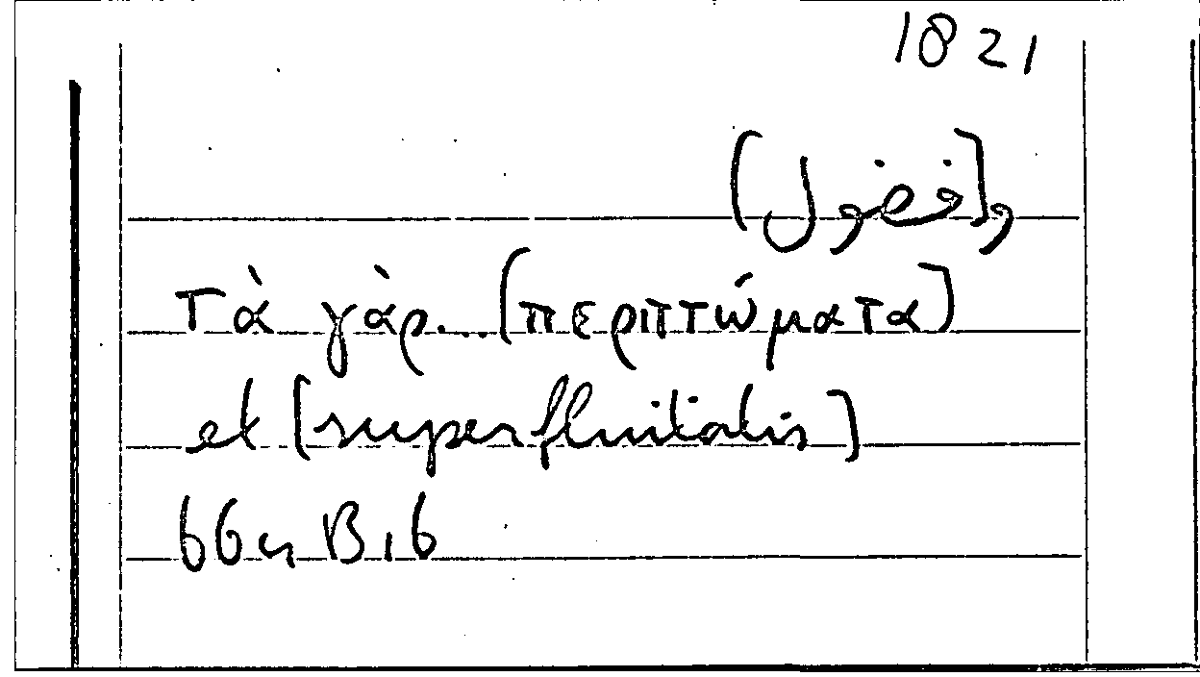 1821
[فضول],
Τὰ γὰρ...(περιττώματα)
et [superfluitatis]
664 B 16